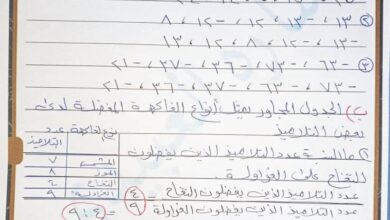 ② ١٣ ، -١٣ ، ١٢ ، -١٢ ، ٨
-١٣ ، -١٢ ، ٨ ، ١٢ ، ١٣
-٦٣ ، -٧٣ ، -٣٦ ، -٣٧ ، -٢١
-٧٣ ، -٦٣ ، -٣٧ ، -٣٦ ، -٢١
ب) الجدول المجاور يمثل أنواع الفاكهة المفضلة لدى
بعض التلاميذ
نوع الفاكهة عدد التلاميذ
المشمش ٧
الموز ٨
التفاح ٤
الفراولة ٩
١) ما النسبة عدد التلاميذ الذين يفضلون
التفاح على الفراولة
عدد التلاميذ الذين يفضلون التفاح = ٤
عدد التلاميذ الذين يفضلون الفراولة ٩
= ٤ : ٩